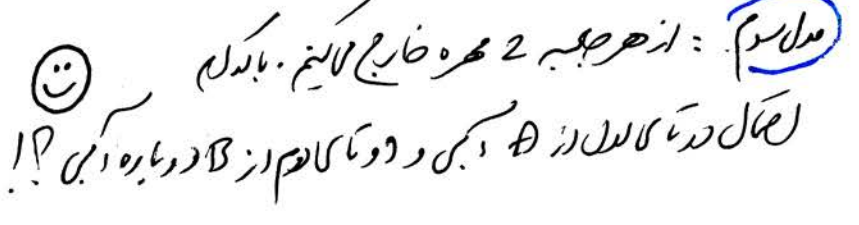 مدل سوم : از هر جعبه 2 مهره خارج می‌کنیم. با کدام
احتمال دو تای اول از A آبی و دو تای دوم از B دوباره آبی؟!